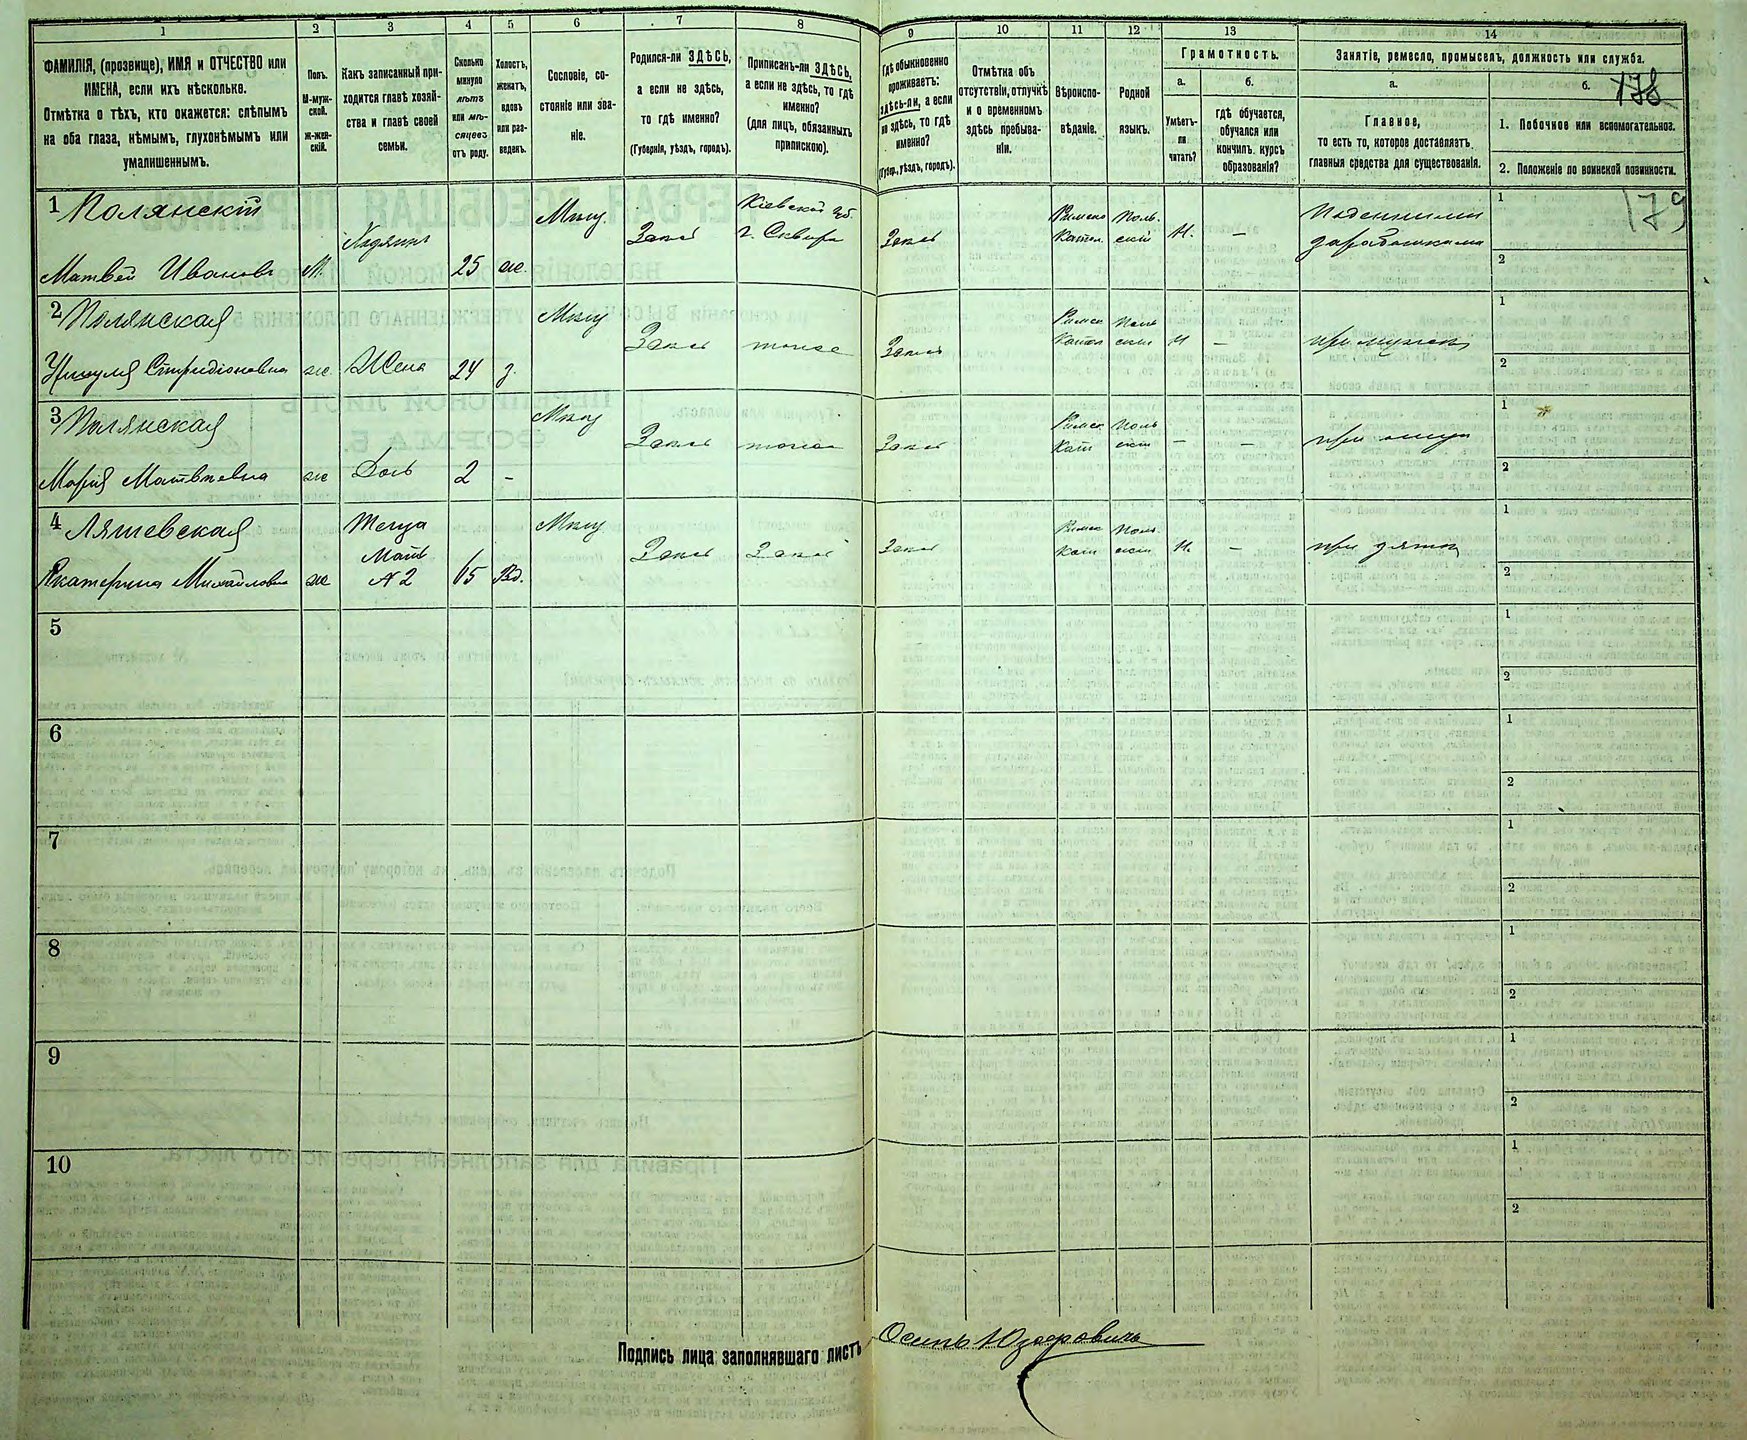 1
2
3
4
5
6
7
8
9
10
11
12
13
14
ФАМИЛІЯ, (прозвище), ИМЯ и ОТЧЕСТВО или
ИМЕНА, если ихъ нѣсколько.
Отмѣтка о тѣхъ, кто окажется: слѣпымъ
на оба глаза, нѣмымъ, глухонѣмымъ или
умалишеннымъ.
Полъ.
М-муж-
ской.
Ж-жен-
скій.
Какъ записанный при-
ходится главѣ хозяй-
ства и главѣ своей
семьи.
Сколько
минуло
лѣтъ
или мѣ-
сяцевъ
отъ роду.
Холостъ,
женатъ,
вдовъ
или раз-
веденъ.
Сословіе, со-
стояніе или зва-
ніе.
Родился-ли ЗДѢСЬ,
а если не здѣсь,
то гдѣ именно?
(Губернія, уѣздъ, городъ).
Приписанъ-ли ЗДѢСЬ,
а если не здѣсь, то гдѣ
именно?
(для лицъ, обязанныхъ
припискою).
Гдѣ обыкновенно
проживаетъ:
здѣсь-ли, а если
не здѣсь, то гдѣ
именно?
(Губер., уѣздъ, городъ).
Отмѣтка объ
отсутствіи, отлучкѣ
и о временномъ
здѣсь пребыва-
ніи.
Вѣроиспо-
вѣданіе.
Родной
языкъ.
Грамотность.
а.
Умѣетъ-
ли
читать?
б.
Гдѣ обучается,
обучался или
кончилъ курсъ
образованія?
Занятіе, ремесло, промыселъ, должность или служба.
а.
Главное,
то есть то, которое доставляетъ
главныя средства для существованія.
б.
178
1. Побочное или вспомогательное.
2. Положеніе по воинской повинности.
179
1 Полянскій
Матвей Ивановъ
М.
Хозяинъ
25
ж.
Мѣщ.
Здѣсь
Кіевской губ.
г. Сквира
Здѣсь
Римско
Катол.
Поль-
скій
Н.
—
Поденными
заработками
1
2
2 Полянская
Спиридоновна
ж.
Жена
24
з.
Мѣщ
Здѣсь
тоже
Здѣсь
Римск
Катол
Поль
скій
Н
—
при мужѣ
1
2
3 Полянская
Марія Матвѣевна
ж
Дочь
2
-
Мѣщ
Здѣсь
тоже
Здѣсь
Римск
Кат
Поль
скій
—
—
при отцѣ
1
2
4 Ляшевская
Екатерина Михайловна
ж
Теща
Мать
№ 2
65
Вд.
Мѣщ
Здѣсь
Здѣсь
Здѣсь
Римск
Кат
Поль
скій
Н.
—
при зятѣ
1
2
5
1
2
6
1
2
7
1
2
8
1
2
9
1
2
10
1
2
Подпись лица заполнявшаго листъ
Осипъ